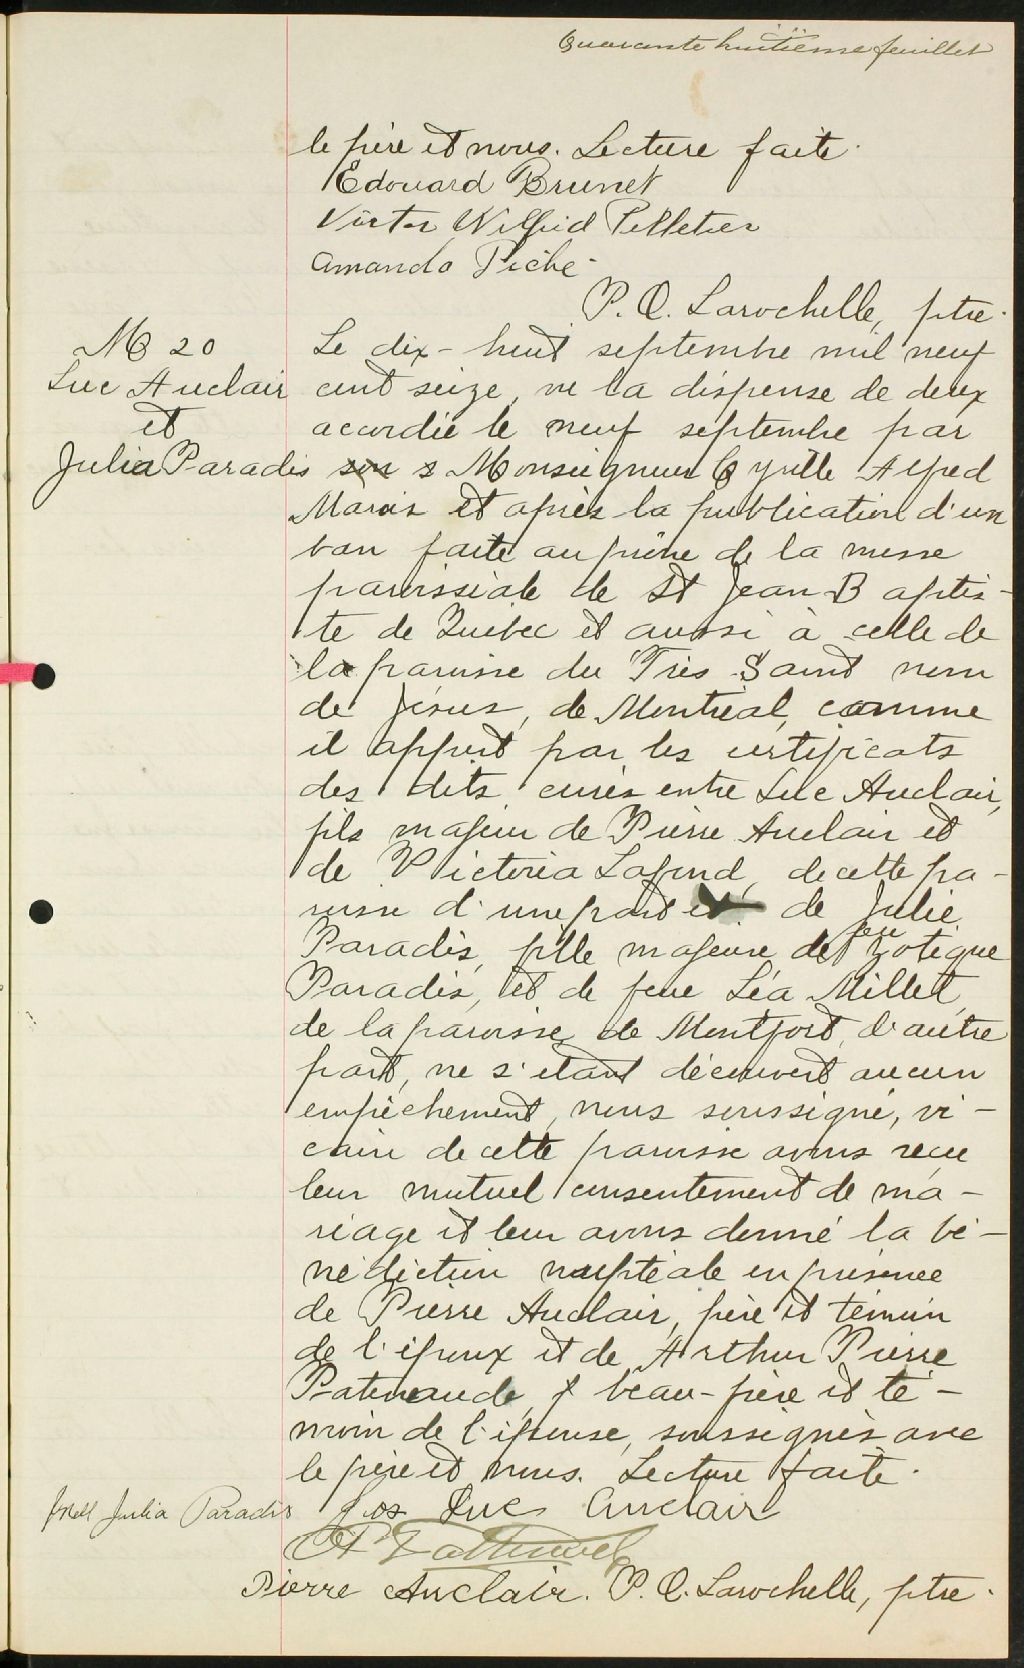 Quarante huitième feuillet
le père et nous. Lecture faite.
Edouard Brunet
Victor Wilfrid Pelletier
Amanda Piché
P. O. Larochelle, ptre.
M 20
Luc Auclair
et
Julia Paradis
Le dix-huit septembre mil neuf
cent seize, vu la dispense de deux
accordée le neuf septembre par
Monseigneur Cyrille Alfred
Marois et après la publication d'un
ban faite au prône de la messe
paroissiale de St Jean Baptis-
te de Québec et aussi à celle de
la paroisse du Très Saint nom
de Jésus, de Montréal, comme
il appert par les certificats
des dits curés entre Luc Auclair,
fils majeur de Pierre Auclair et
de Victoria Lafond, de cette pa-
roisse d'une part et de Julie
Paradis, fille majeure de feu Zotique
Paradis, et de feue Léa Millet,
de la paroisse de Montfort, d'autre
part, ne s'étant découvert aucun
empêchement, nous soussigné, vi-
caire de cette paroisse avons reçu
leur mutuel consentement de ma-
riage et leur avons donné la bé-
nédiction nuptiale en présence
de Pierre Auclair, père et témoin
de l'époux et de Arthur Pierre
Patenaude, beau-père et té-
moin de l'épouse, soussignés avec
le père et nous. Lecture faite.
Julia Paradis
Jos Luc Auclair
Pierre Auclair. P. O. Larochelle, ptre.